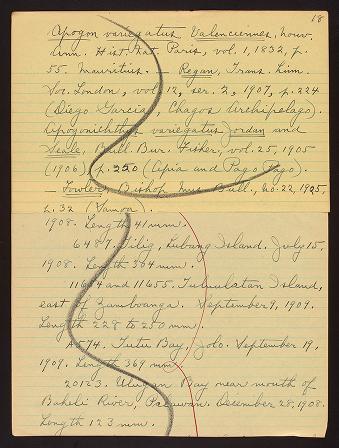 18
Apogon variegatus Valenciennes, Nouv.
Ann. Hist. Nat. Paris, vol. 1, 1832, p.
55. Mauritius. — Regan, Trans. Linn.
Soc. London, vol. 12, ser. 2, 1907, p. 224
(Diego Garcia, Chagos Archipelago).
Apogonichthys variegatus Jordan and
Seale, Bull. Bur. Fisher., vol. 25, 1905
(1906), p. 250 (Apia and Pago Pago).
— Fowler, Bishop Mus. Bull., no. 22, 1925,
p. 32 (Samoa).
1908. Length 41 mm.
6487. Tilig, Lubang Island. July 15,
1908. Length 364 mm.
11654 and 11655. Tutulatan Island,
east of Zamboanga. September 9, 1909.
Length 228 to 250 mm.
A574. Tutu Bay, Jolo. September 19,
1909. Length 369 mm.
20123. Ulugan Bay near mouth of
Baheli River, Palawan. December 28, 1908.
Length 123 mm.